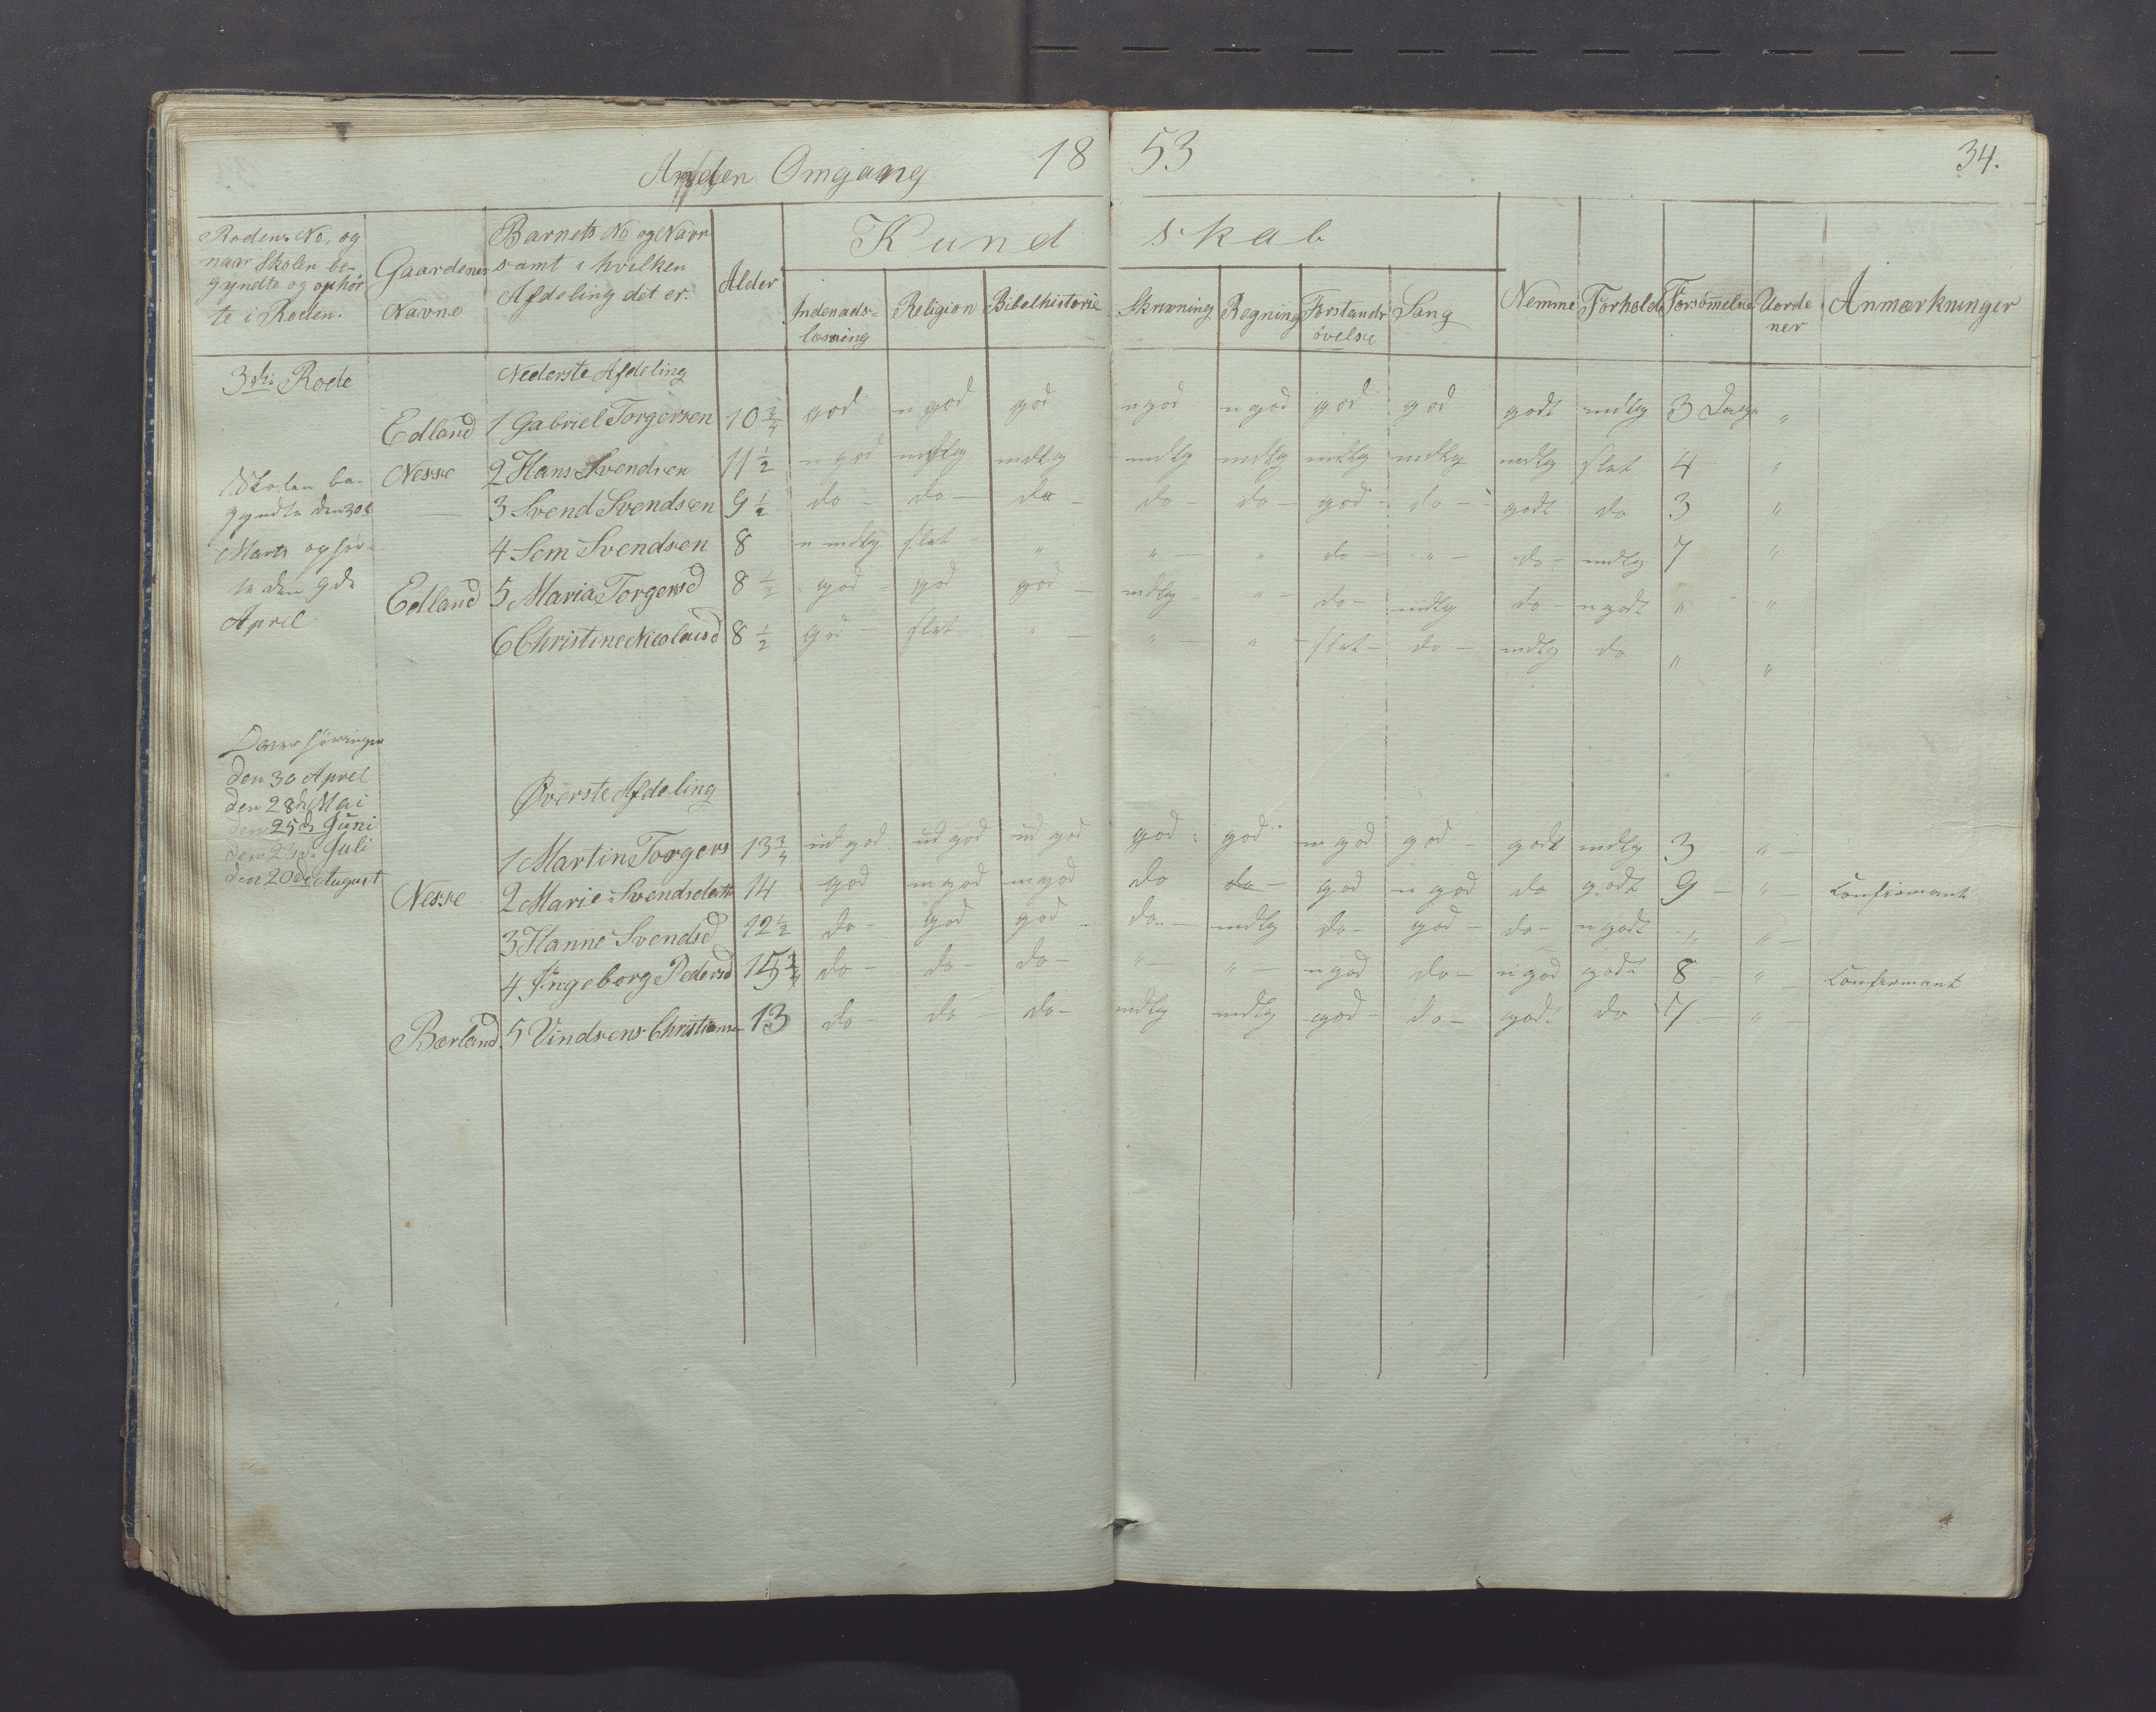 Anden Omgang 18 53 34.
Rodens No, og
naar Skolen be-
gyndte og ophør
te i Roden.
Gaardenes
Navne
Barnets No og Navn
samt i hvilken
Afdeling det er.
Alder
Kund skab
Indenads-
læsning
Religion
Bibelhistorie
Skrivning
Regning
Forstands
øvelse
Sang
Nemme
Forhold
Forsømmelse
Uorde
ner
Anmærkninger
3die Rode
Nederste Afdeling
Edland 1 Gabriel Torgersen 10 3/4 god n god god n god n god god god godt mdlg 3 Dage "
Nesse 2 Hans Svendsen 11 1/2 n god mdlg mdlg mdlg mdlg mdlg mdlg mdlg slet 4 "
— 3 Svend Svendsen 9 1/2 do - do - do - do do - god - do - godt do 3 "
4 Sem Svendsen 8 n mdlg slet - " " - " do - " - do - mdlg 7 "
Edland 5 Maria Torgersd 8 1/2 god - god god - mdlg - " - do - mdlg do - n godt " "
6 Christine Nicolaisd 8 1/2 god - slet - " - " - slet - do - mdlg do " "
Skolen be-
gyndte den 30t
Marts ophør-
te den 9de
April
den 30 April
den 28de Mai
den 25de Juni
den 23de Juli
den 20de August
Øverste Afdeling
1 Martin Torgers 13 3/4 ud god ud god ud god god god m god god - godt mdlg 3 " -
Nesse 2 Marie Svendsdatt 14 god m god m god do do - god n god do godt 9 - " - Confirmant
3 Hanne Svendsd 12 1/2 do - god god - do - mdlg do - god - do - n godt " " -
4 Ingeborg Pedersd 15 3/4 do - do - do - " - " - n god do - n god godt 8 " - Confirmant
Bærland 5 Vindsens Christiansen 13 do - do do - mdlg mdlg god - do - godt do 7 " -